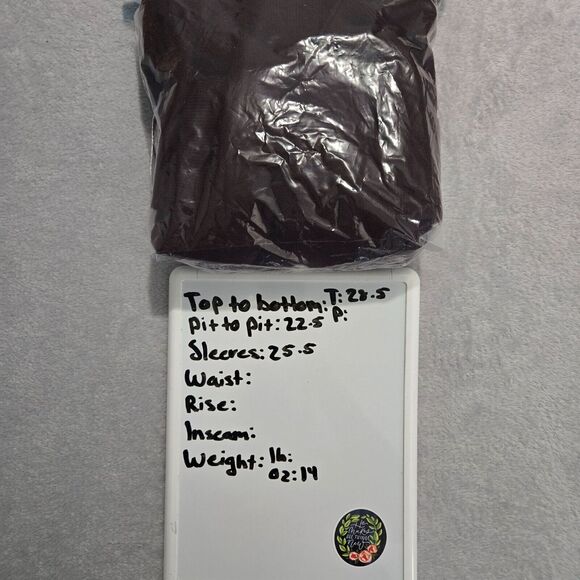 Top to bottom: T: 28.5
P:
Pit to Pit: 22.5
Sleeves: 25.5
Waist:
Rise:
Inseam:
Weight: lb:
oz: 14